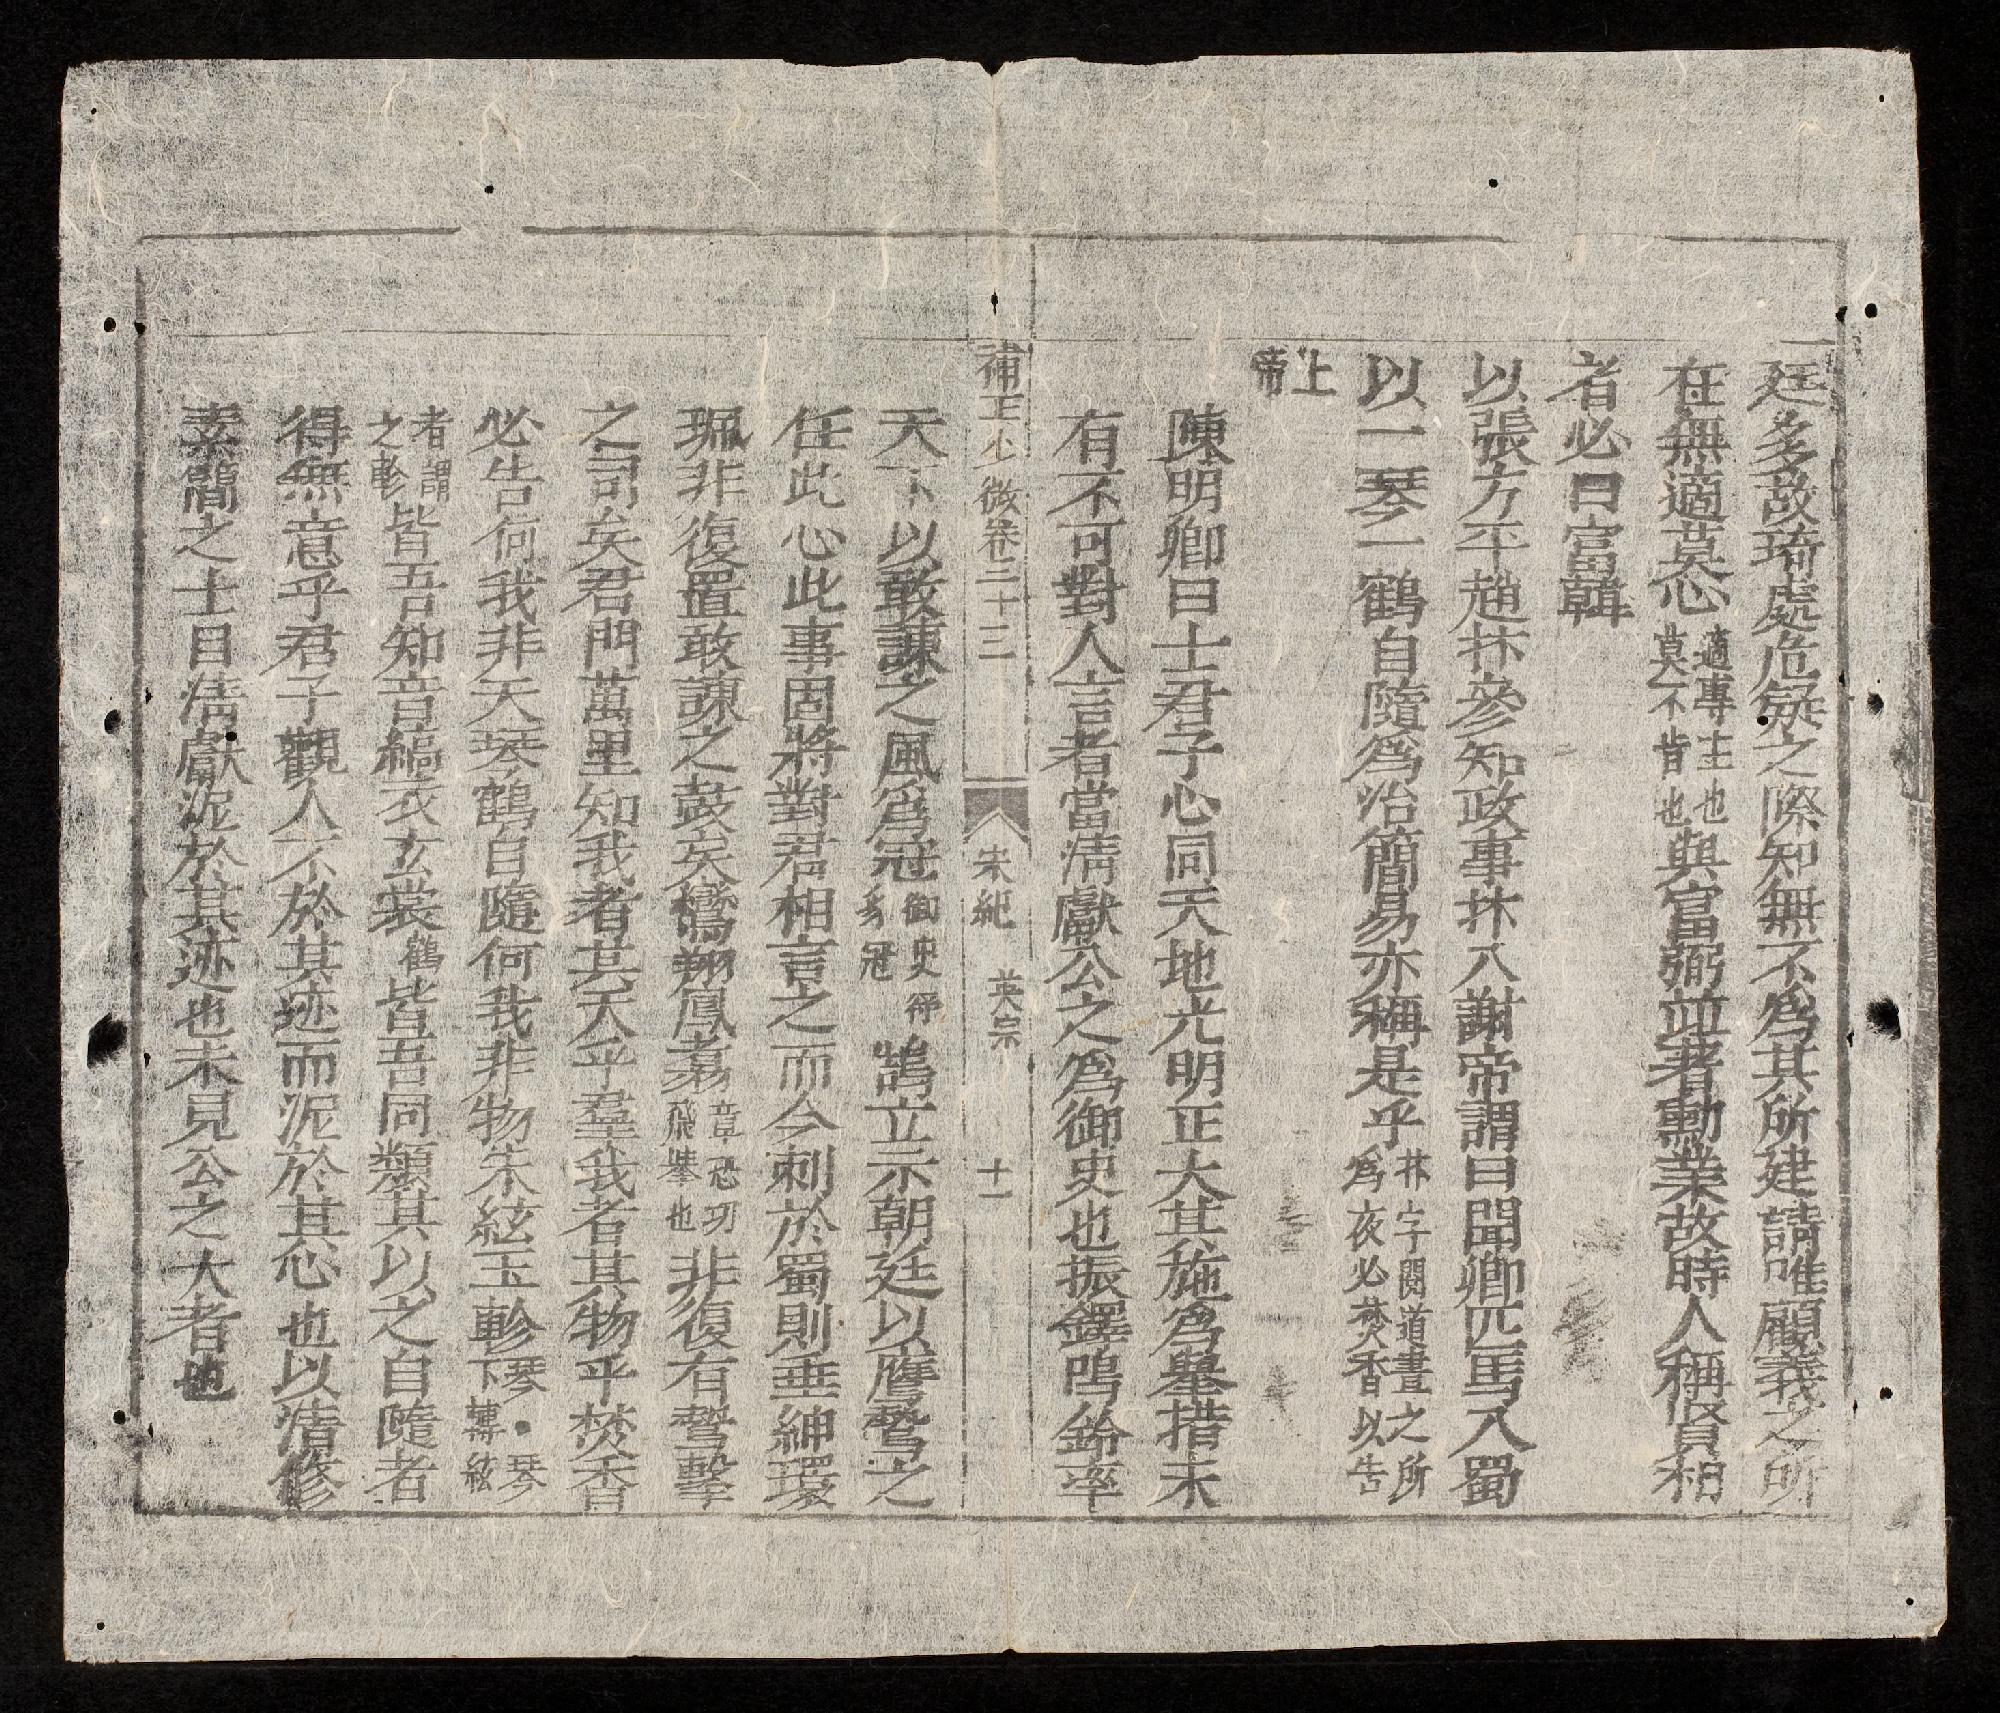 廷多故琦處危疑之際知無不爲其所建請唯顧義之所
在無適莫心適專主也莫不肯也與富弼並著勳業故時人稱賢相
者必曰富韓
以張方平趙抃參知政事抃入謝帝謂曰聞卿匹馬入蜀
以一琴一鶴自隨爲治簡易亦稱是乎抃字閱道晝之所爲夜必焚香以告
上帝
陳明卿曰士君子心同天地光明正大其施爲舉措未
有不可對人言者當清獻公之爲御史也振鐸鳴鈴率
補正少微卷二十三 宋紀 英宗 十一
天下以敢諫之風爲冠御史冠豸冠鵠立示朝廷以鷹鷙之
任此心此事固將對君相言之而今刺於蜀則垂紳環
珮非復置敢諫之鼓矣鸞翔鳳翥章恐切飛擧也非復有鷙擊
之司矣君門萬里知我者其天乎羣我者其物乎焚香
必告何我非天琴鶴自隨何我非物朱絃玉軫琴下轉絃
者謂之軫皆吾知音縞衣玄裳鶴皆吾同類其以之自隨者
得無意乎君子觀人不於其迹而泥於其心也以清修
素簡之士目清獻泥於其迹也未見公之大者也